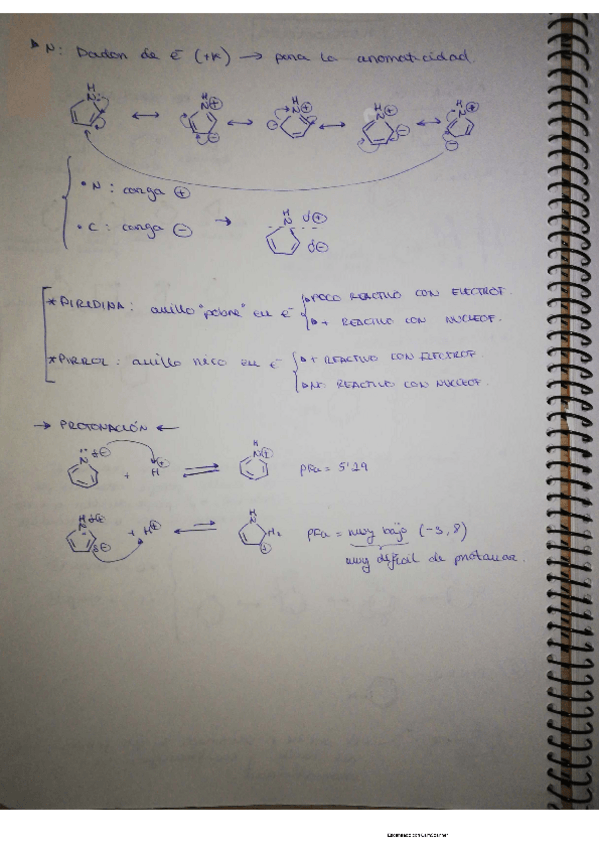 ▷ N: Dador de e⁻ (+K) → para la aromaticidad.
H N ↔ H N ⊕ ⊖ ↔ H N ⊕ ⊖ ↔ H N ⊕ ⊖ ↔ H N ⊕ ⊖
• N: carga ⊕
• C: carga ⊖ → H N δ⊕ δ⊖
* PIRIDINA: anillo "pobre" en e⁻ ▷ POCO REACTIVO CON ELECTROF.
▷ + REACTIVO CON NUCLEOF.
* PIRROL: anillo rico en e⁻ ▷ + REACTIVO CON ELECTROF.
▷ NO REACTIVO CON NUCLEOF.
→ PROTONACIÓN ←
N δ⊖ + H⊕ ⇌ H N⊕ pKa = 5'29
NH δ⊕ δ⊖ + H⊕ ⇌ H N H₂ ⊕ pKa = muy bajo (-3,8)
muy difícil de protonar.
Escaneado con CamScanner